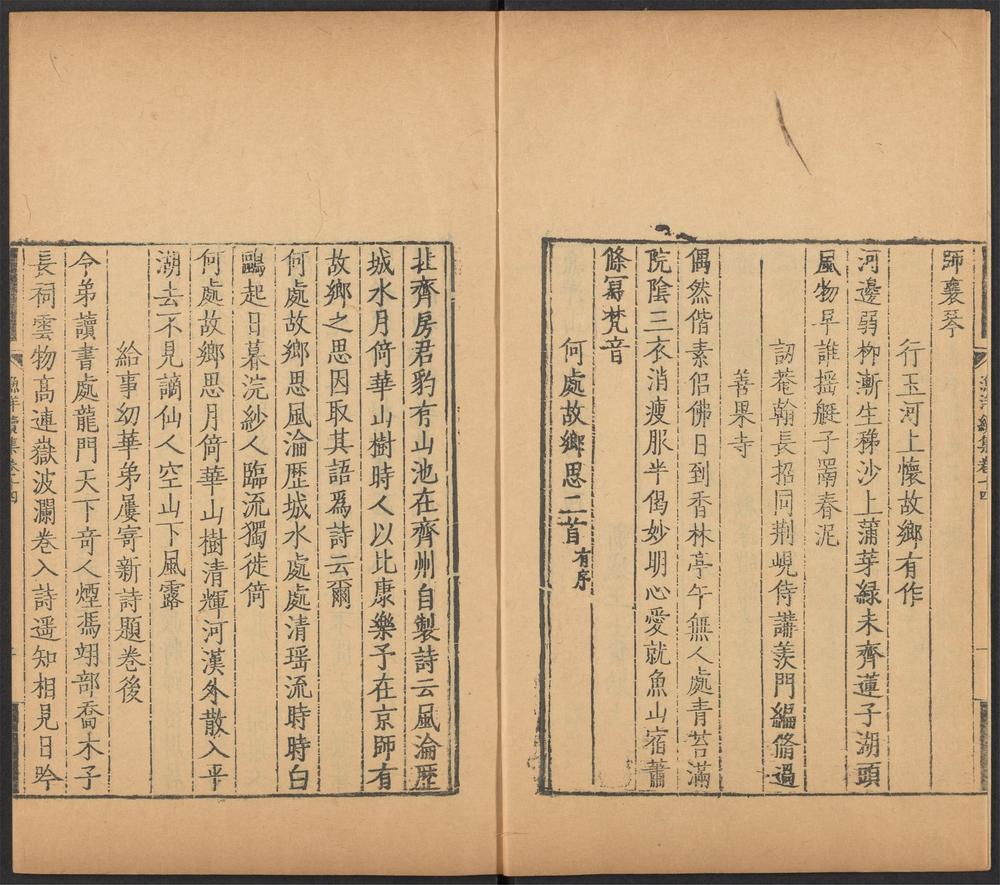 漁洋續集卷十四
師襄琴
行玉河上懷故鄉有作
河邊弱柳漸生稊沙上蒲芽緑未齊蓮子湖頭
風物早誰摇艇子罱春泥
訒菴翰長招同荆峴侍講羨門編脩過
善果寺
偶然偕素侣佛日到香林亭午無人處青苔滿
院陰三衣消瘦服半偈妙明心愛就魚山宿蕭
條寫梵音
何處故鄉思二首有序
北齊房君豹有山池在齊州自製詩云風淪歴
城水月倚華山樹時人以比康樂予在京師有
故鄉之思因取其語爲詩云爾
何處故鄉思風淪歴城水處處清瑶流時時白
鷗起日暮浣紗人臨流獨徙倚
何處故鄉思月倚華山樹清輝河漢外散入平
湖去不見謫仙人空山下風露
給事幼華弟屢寄新詩題卷後
令弟讀書處龍門天下竒人煙馮翊部喬木子
長祠雲物髙連嶽波瀾卷入詩遥知相見日吟
漁洋續集卷十四